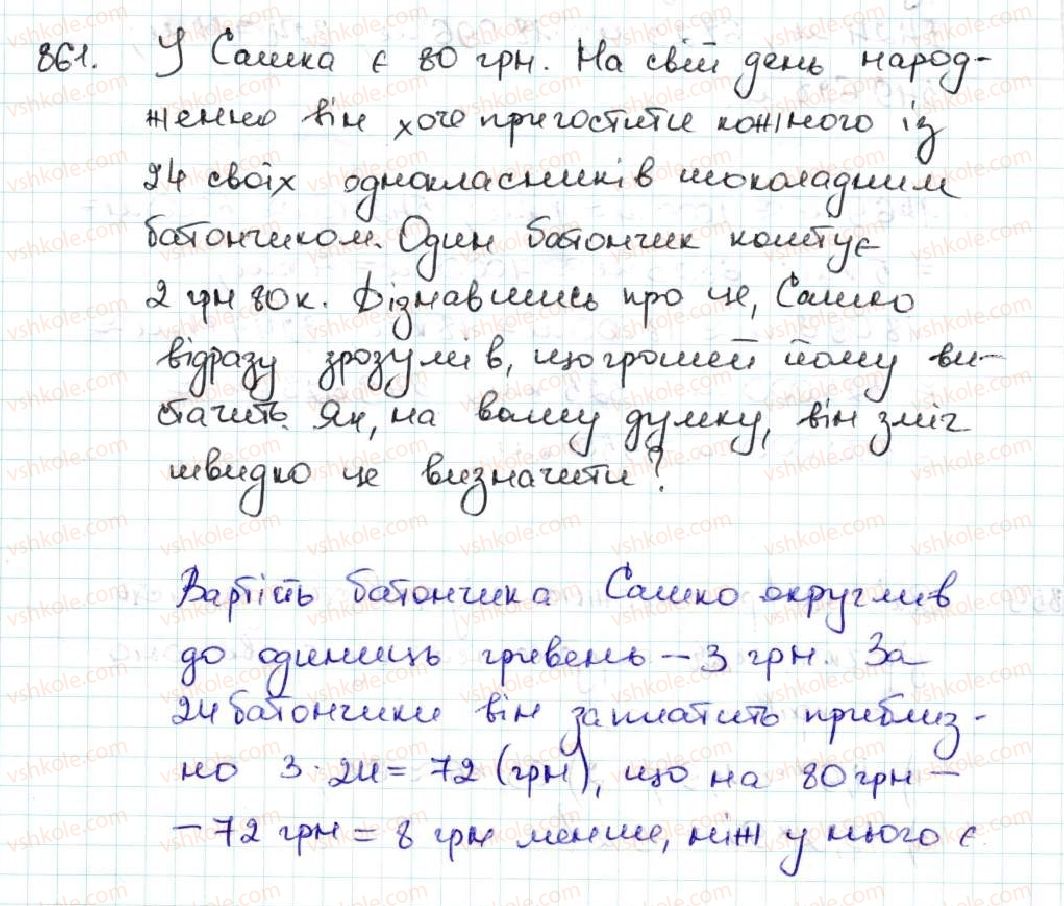 861. У Сашка є 80 грн. На свій день народ-
ження він хоче пригостити кожного із
24 своїх однокласників шоколадним
батончиком. Один батончик коштує
2 грн 80 к. Дізнавшись про це, Сашко
відразу зрозумів, що грошей йому ви-
стачить. Як, на вашу думку, він зміг
швидко це визначити?
Вартість батончика Сашко округлив
до одиниць гривень – 3 грн. За
24 батончики він заплатить приблиз-
но 3 · 24 = 72 (грн), що на 80 грн –
– 72 грн = 8 грн менше, ніж у нього є.